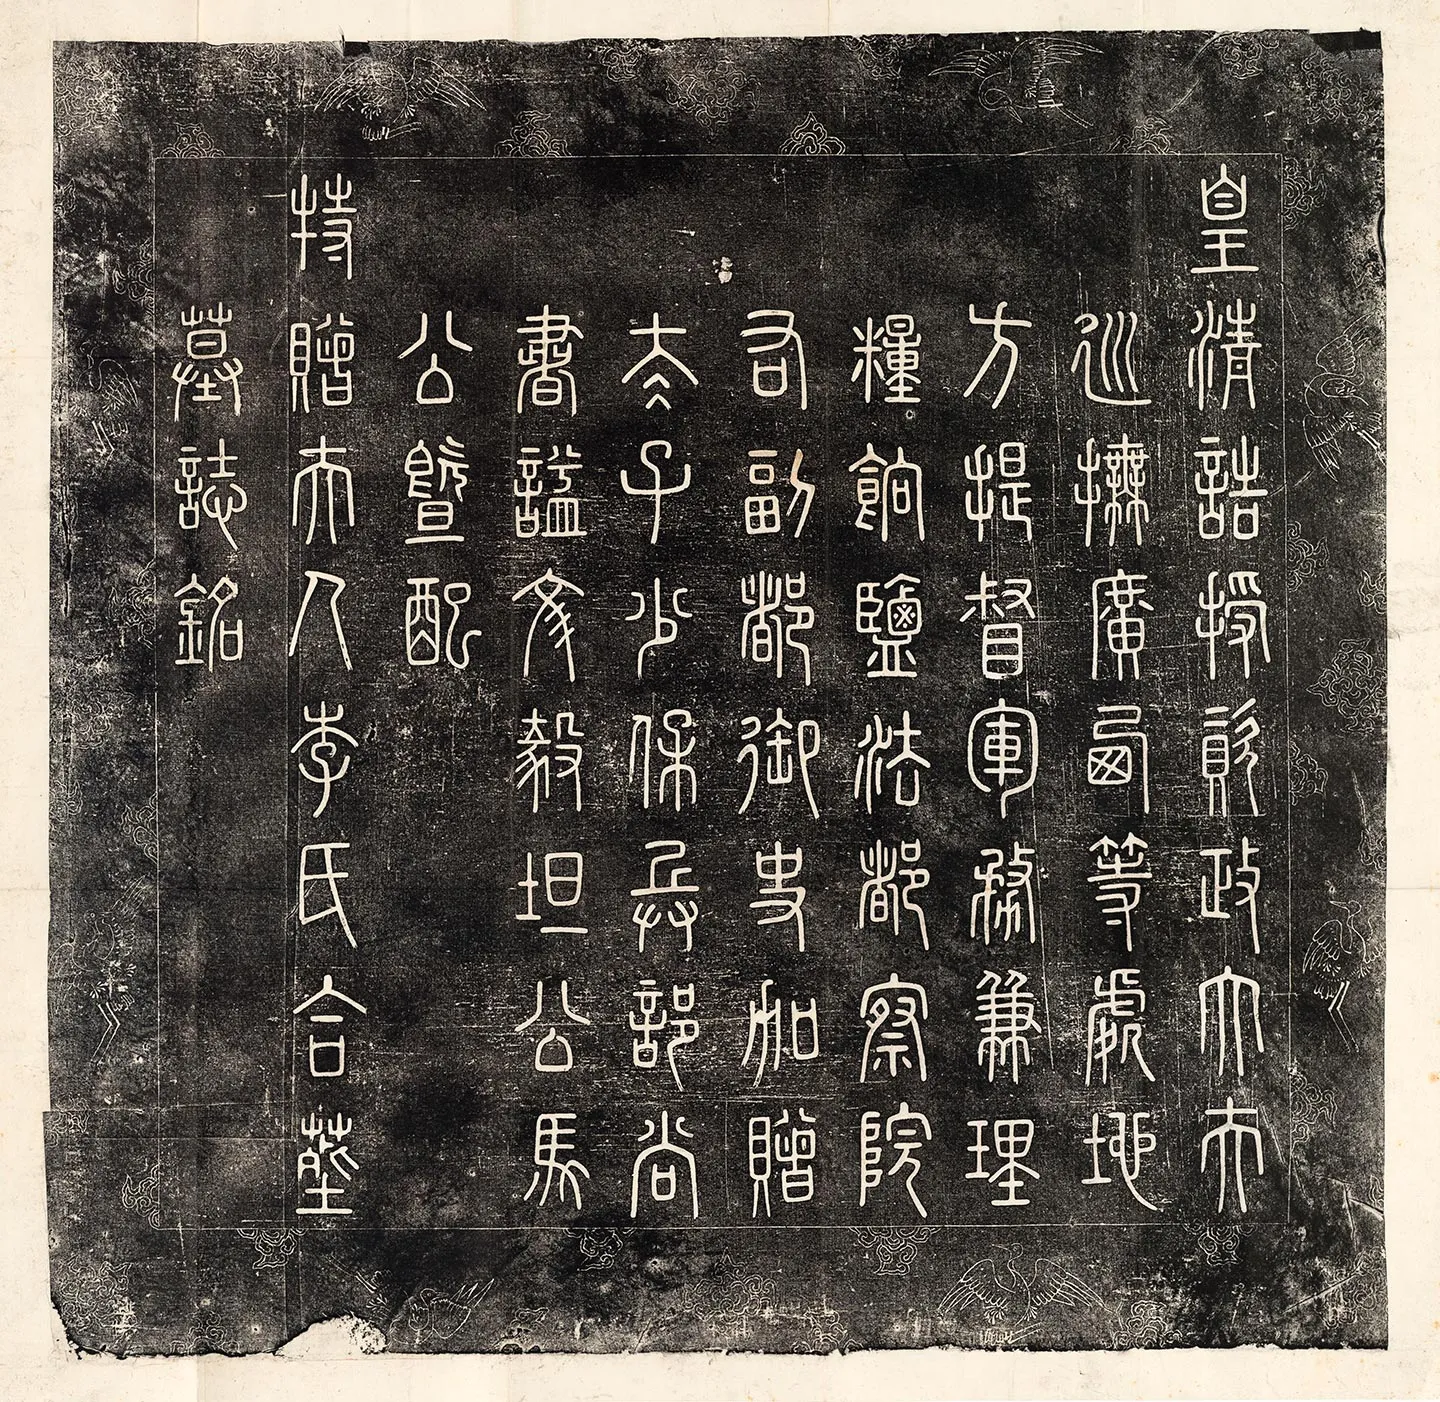 皇清誥授資政大夫
巡撫廣西等處地
方提督軍務兼理
糧餉鹽法都察院
右副都御史加贈
太子少保兵部尚
書謚文毅坦公馬
公暨配
特贈夫人李氏合葬
墓誌銘